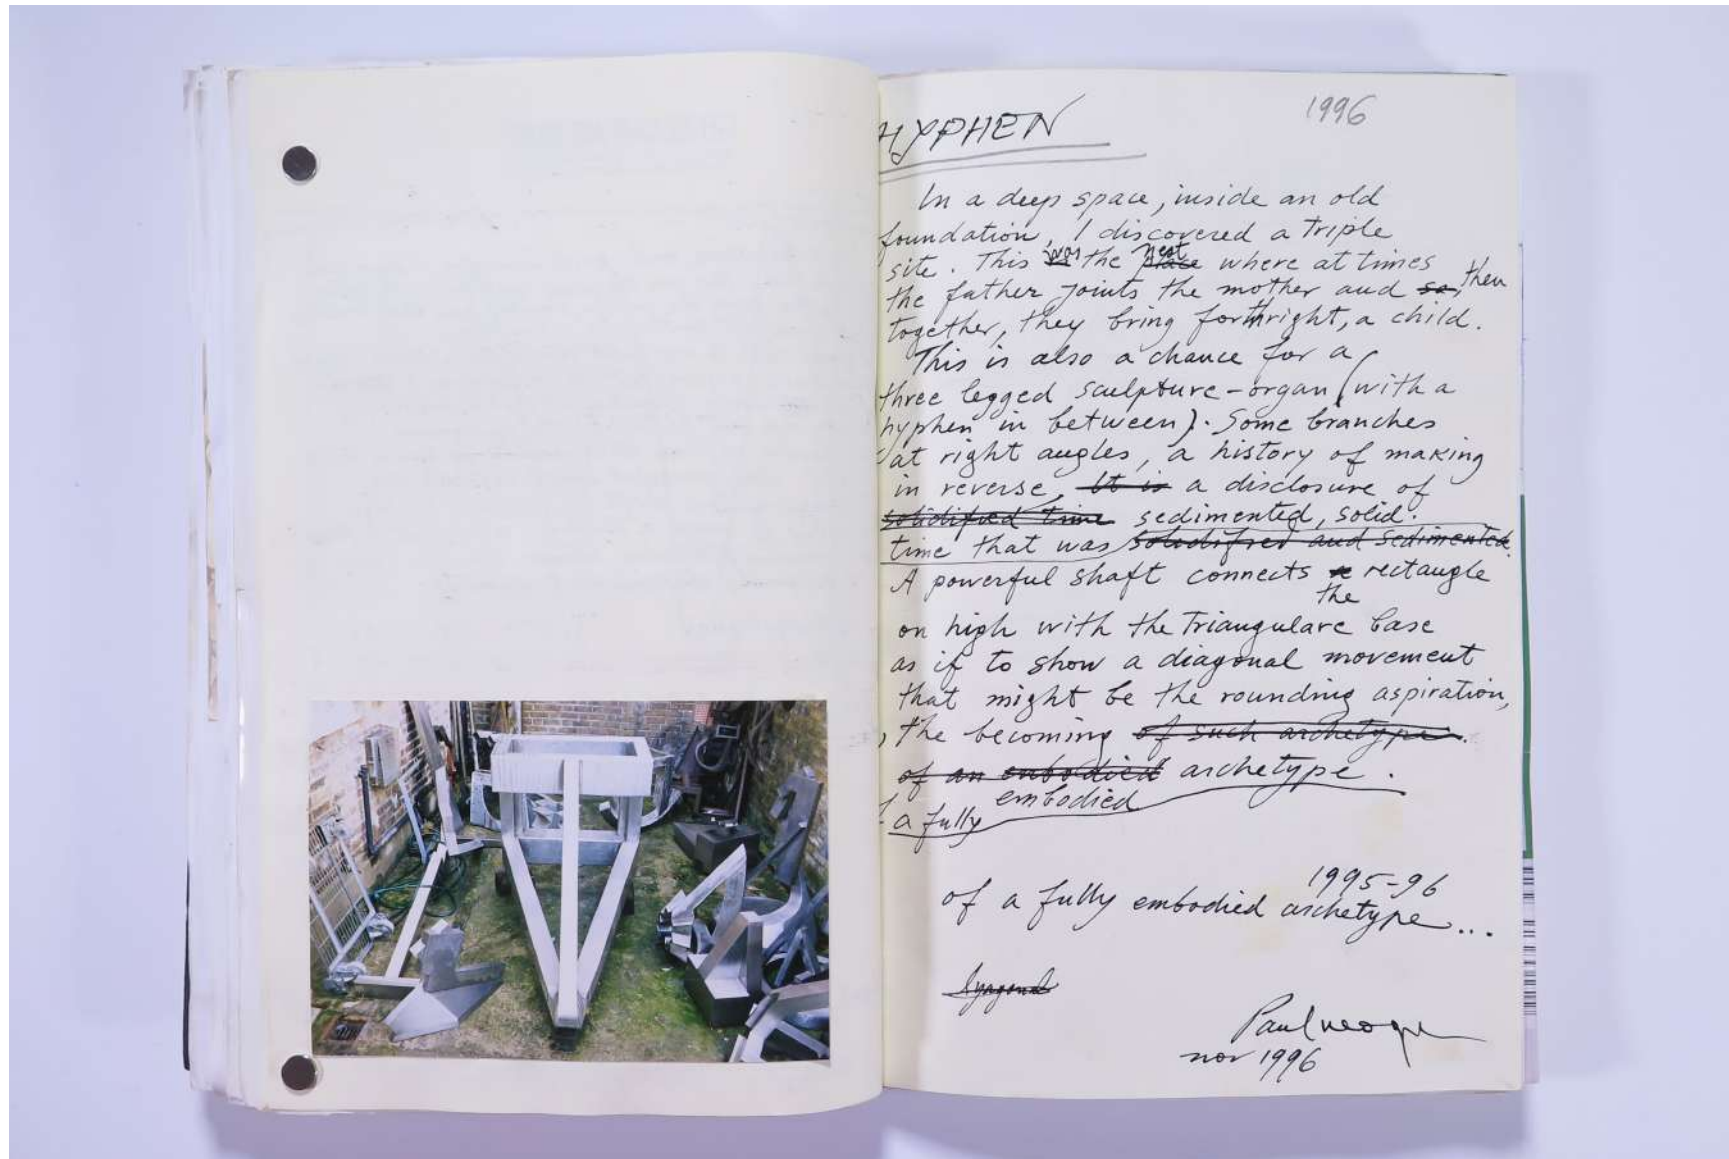 1996
HYPHEN
In a deep space, inside an old
foundation, I discovered a triple
site. This is was the place nest where at times
the father joints the mother and so, then
together, they bring forthright, a child.
This is also a chance for a
three legged sculpture-organ (with a
hyphen in between). Some branches
at right angles, a history of making
in reverse, It is a disclosure of
solidified time sedimented, solid.
time that was solidified and sedimented.
A powerful shaft connects a rectangle
the
on high with the triangulare base
as if to show a diagonal movement
that might be the rounding aspiration,
, the becoming of such archetype.
of an embodied archetype.
embodied
a fully
1995-96
of a fully embodied archetype...
Paul Neagu
nov 1996